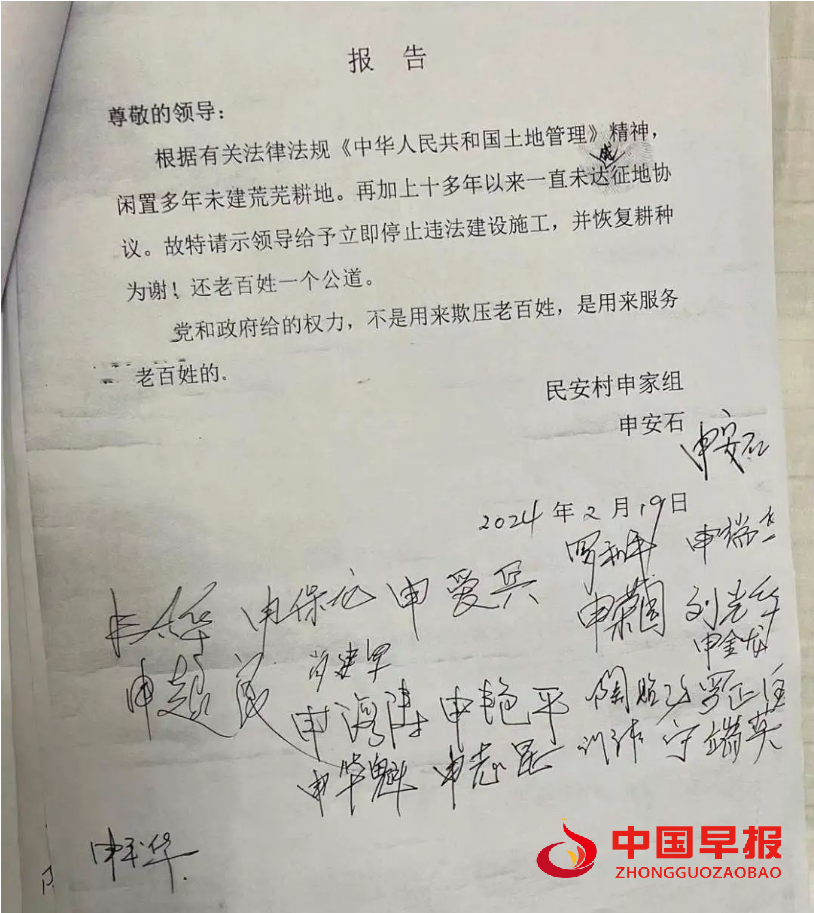 报 告
尊敬的领导：
根据有关法律法规《中华人民共和国土地管理》精神，
闲置多年未建荒芜耕地。再加上十多年以来一直未达成征地协
议。故特请示领导给予立即停止违法建设施工，并恢复耕种
为谢！还老百姓一个公道。
党和政府给的权力，不是用来欺压老百姓，是用来服务
老百姓的.
民安村申家组
申安石
申安石
2024年2月19日
申瑞
申保龙 申爱兵 申荣国 刘光华
申金龙
申赵民 肖建军
申艳平
申华魁 申志昆 宁端英
申玉华
中国早报
ZHONGGUOZAOBAO